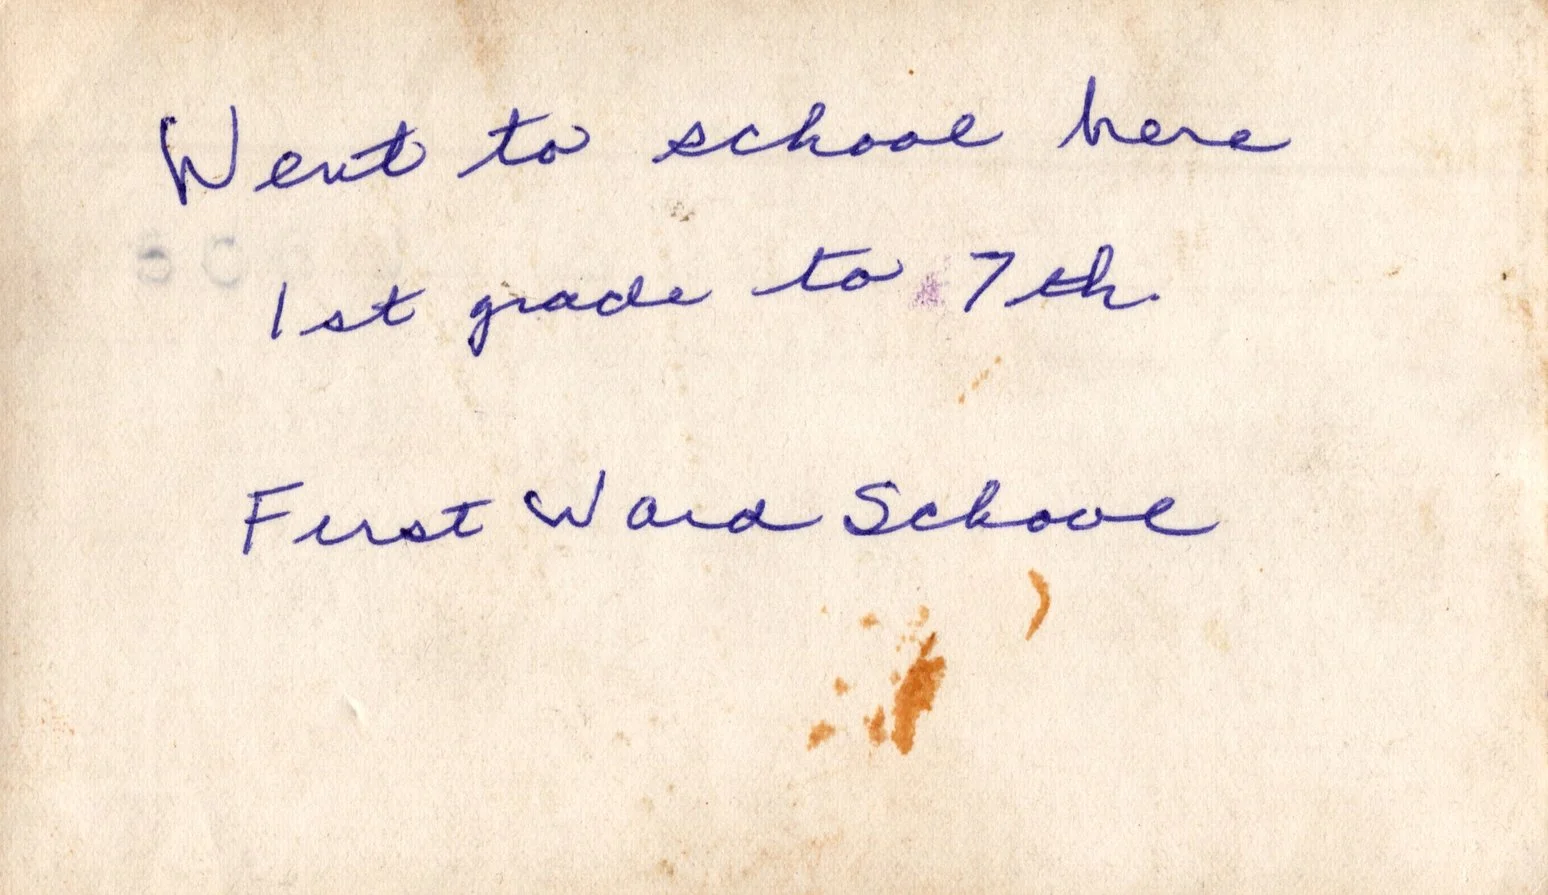 Went to school here
1st grade to 7th.
First Ward School